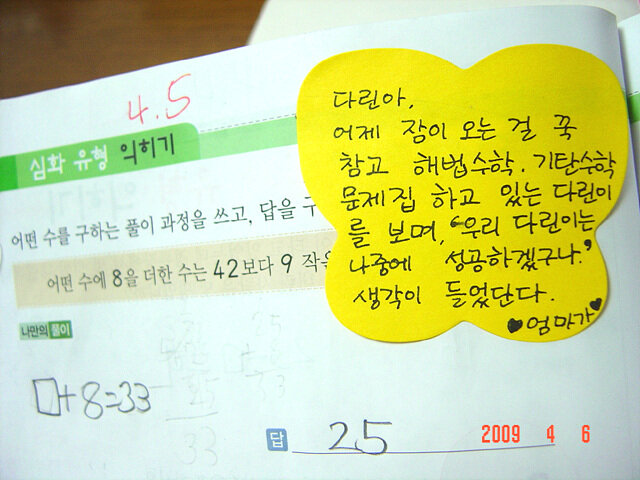 4.5
심화 유형 익히기
어떤 수를 구하는 풀이 과정을 쓰고, 답을 구
어떤 수에 8을 더한 수는 42보다 9 작은
나만의 풀이
□+8=33
25
33
25
33
답 25
다린아,
어제 잠이 오는 걸 꾹
참고 해법수학. 기탄수학
문제집 하고 있는 다린이
를 보며, "우리 다린이는
나중에 성공하겠구나."
생각이 들었단다.
♥엄마가♥
2009 4 6